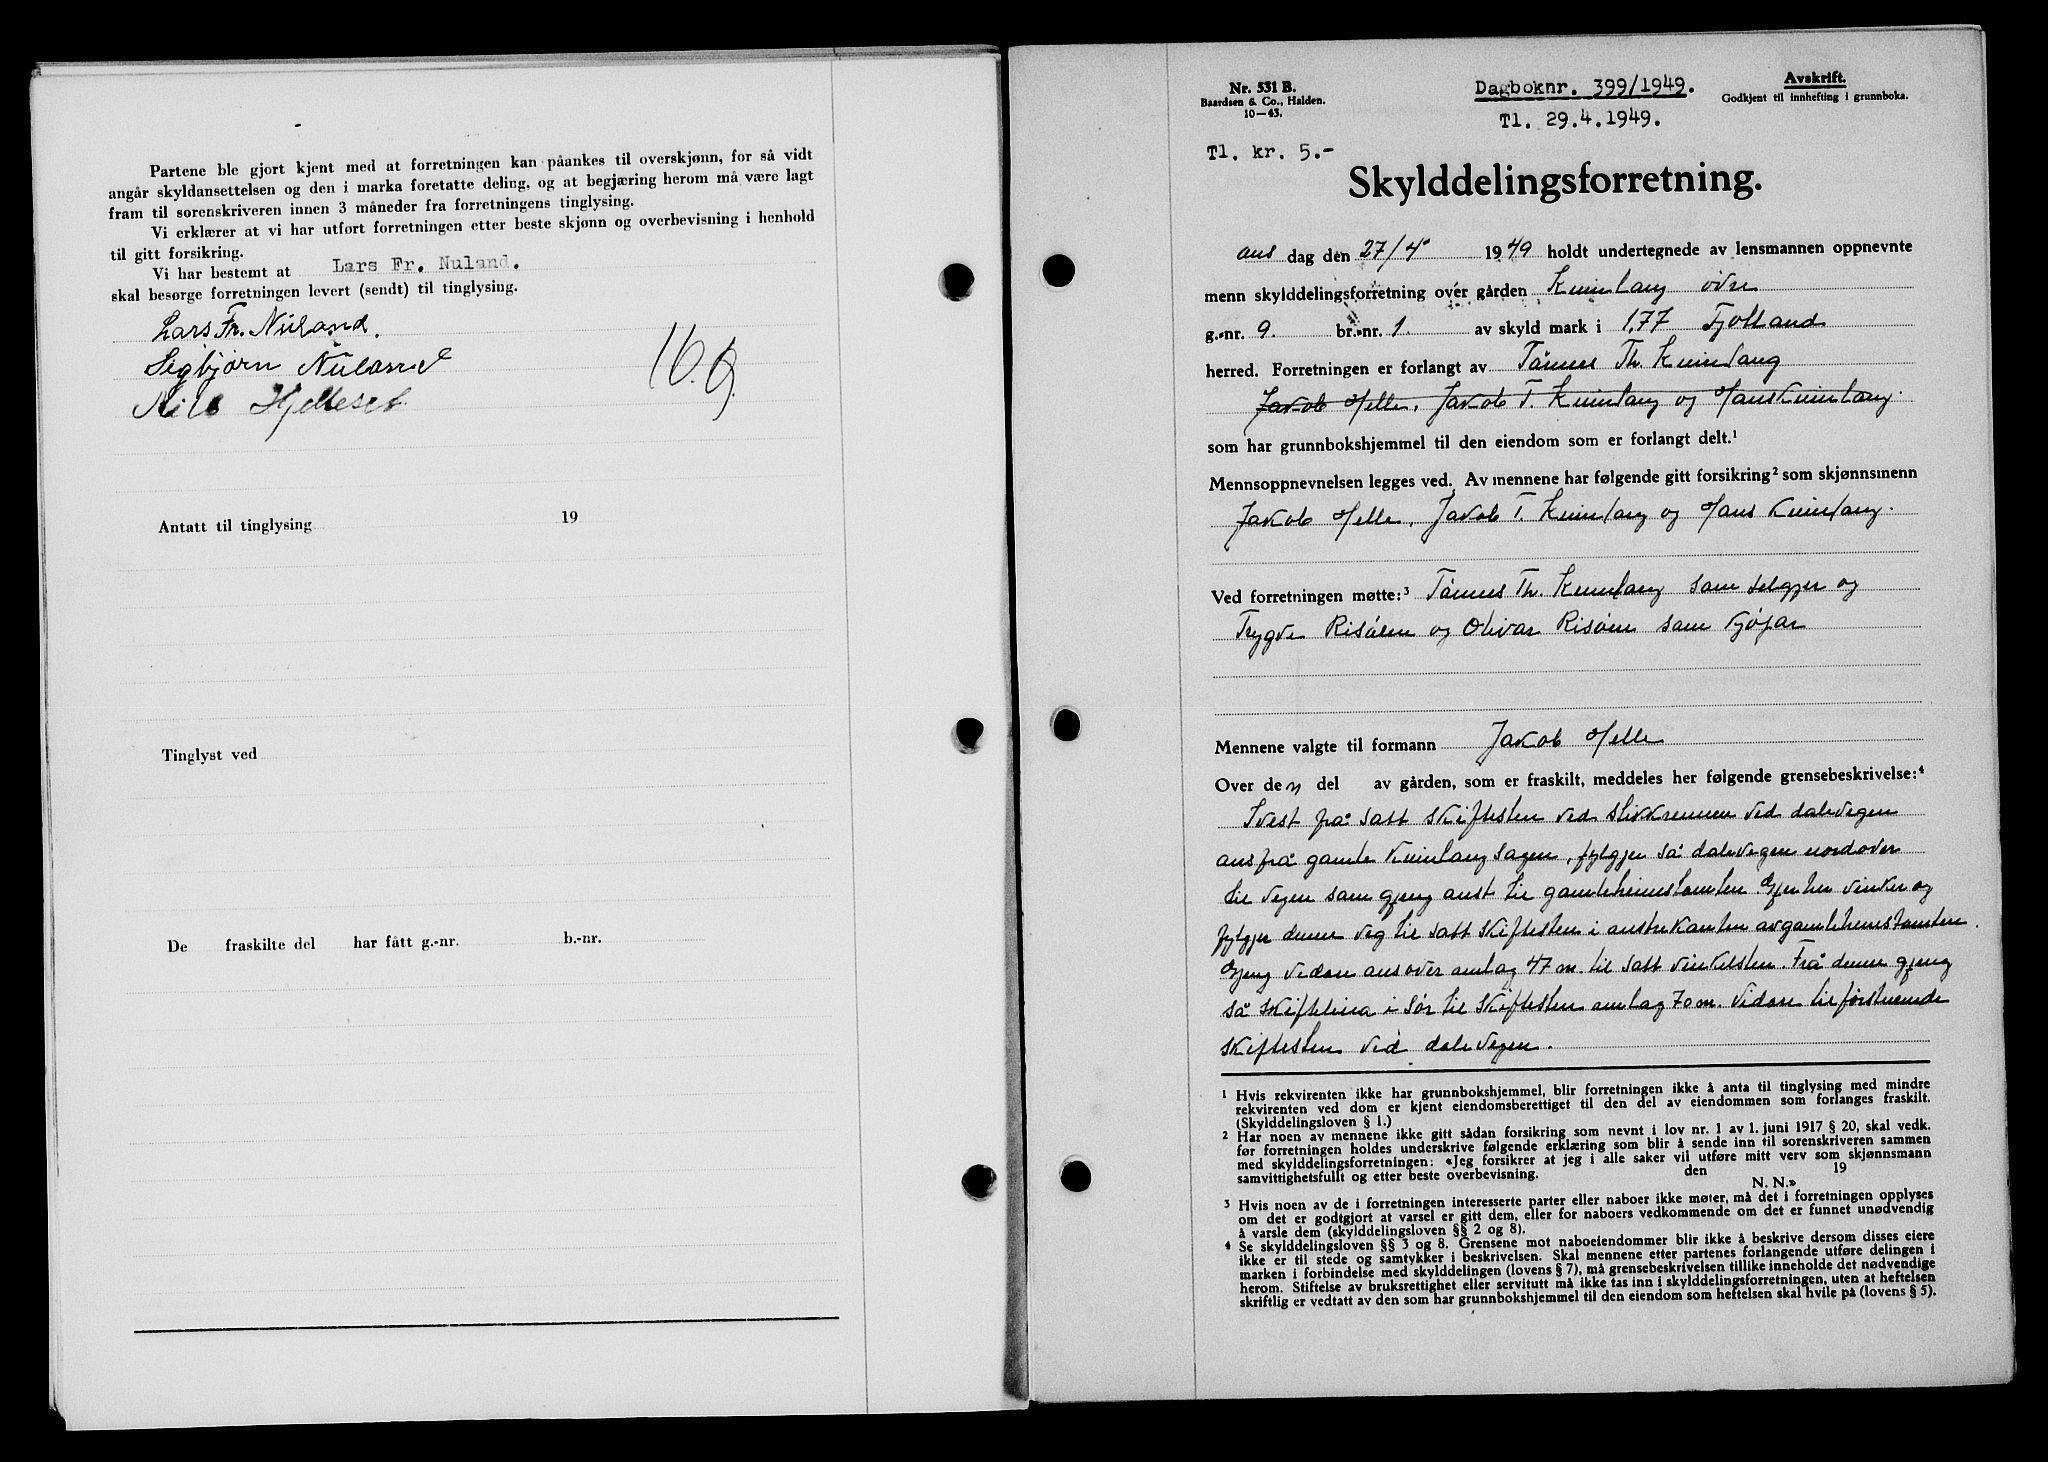 Partene ble gjort kjent med at forretningen kan påankes til overskjønn, for så vidt
angår skyldansettelsen og den i marka foretatte deling, og at begjæring herom må være lagt
fram til sorenskriveren innen 3 måneder fra forretningens tinglysing.
Vi erklærer at vi har utført forretningen etter beste skjønn og overbevisning i henhold
til gitt forsikring.
Vi har bestemt at Lars Fr. Nuland.
skal besørge forretningen levert (sendt) til tinglysing.
Lars Fr. Nuland.
Sigbjørn Nuland
Nils Hjelleset
Antatt til tinglysing 19
Tinglyst ved
De fraskilte del har fått g.-nr. b.-nr.
Nr. 531 B.
Baardsen & Co., Halden.
10—43.
Dagboknr. 399/1949.
Tl. 29.4.1949.
Avskrift.
Godkjent til innhefting i grunnboka.
Tl. kr. 5.-
Skylddelingsforretning.
ons dag den 27/4 1949 holdt undertegnede av lensmannen oppnevnte
menn skylddelingsforretning over gården Kvinlaug øvre
g.-nr. 9 br.-nr. 1 av skyld mark i 1,77 Fjotland
herred. Forretningen er forlangt av Tønnes Th. Kvinlaug
Jakob Helle, Jakob T. Kvinlaug og Hans Kvinlaug.
som har grunnbokshjemmel til den eiendom som er forlangt delt.¹
Mennsoppnevnelsen legges ved. Av mennene har følgende gitt forsikring² som skjønnsmenn
Jakob Helle, Jakob T. Kvinlaug og Hans Kvinlaug.
Ved forretningen møtte:³ Tønnes Th. Kvinlaug som selgjer og
Trygve Risøen og Olivar Risøen som kjøpar
Mennene valgte til formann Jakob Helle
Over den del av gården, som er fraskilt, meddeles her følgende grensebeskrivelse:⁴
I vest frå satt skiftesten ved stikkrennen ved dalevegen
aus frå gamle Kvinlaugsagen, fylgjer så dalevegen nordover
til vegen som gjeng aust til gamleheimstomten. Gjer her vinkel og
fylgjer denne veg til satt skiftesten i austre kanten av gamleheimstomten.
Gjeng vidare ausover omlag 47 m. til satt vinkelsten. Frå denne gjeng
så skiftelina i sør til skiftesten omlag 70 m. Vidare til førstnemnde
skiftesten ved dalevegen.
¹ Hvis rekvirenten ikke har grunnbokshjemmel, blir forretningen ikke å anta til tinglysing med mindre
rekvirenten ved dom er kjent eiendomsberettiget til den del av eiendommen som forlanges fraskilt.
(Skylddelingsloven § 1.)
² Har noen av mennene ikke gitt sådan forsikring som nevnt i lov nr. 1 av 1. juni 1917 § 20, skal vedk.
før forretningen holdes underskrive følgende erklæring som blir å sende inn til sorenskriveren sammen
med skylddelingsforretningen: «Jeg forsikrer at jeg i alle saker vil utføre mitt verv som skjønnsmann
samvittighetsfullt og etter beste overbevisning. den 19
N. N.»
³ Hvis noen av de i forretningen interesserte parter eller naboer ikke møter, må det i forretningen opplyses
om det er godtgjort at varsel er gitt dem, eller for naboers vedkommende om det er funnet unødvendig
å varsle dem (skylddelingsloven §§ 2 og 8).
⁴ Se skylddelingsloven §§ 3 og 8. Grensene mot naboeiendommer blir ikke å beskrive dersom disses eiere
ikke er til stede og samtykker i beskrivelsen. Skal mennene etter partenes forlangende utføre delingen i
marken i forbindelse med skylddelingen (lovens § 7), må grensebeskrivelsen tillike inneholde det nødvendige
herom. Stiftelse av bruksrettighet eller servitutt må ikke tas inn i skylddelingsforretningen, uten at heftelsen
skriftlig er vedtatt av den som har grunnbokshjemmel til den eiendom som heftelsen skal hvile på (lovens § 5).